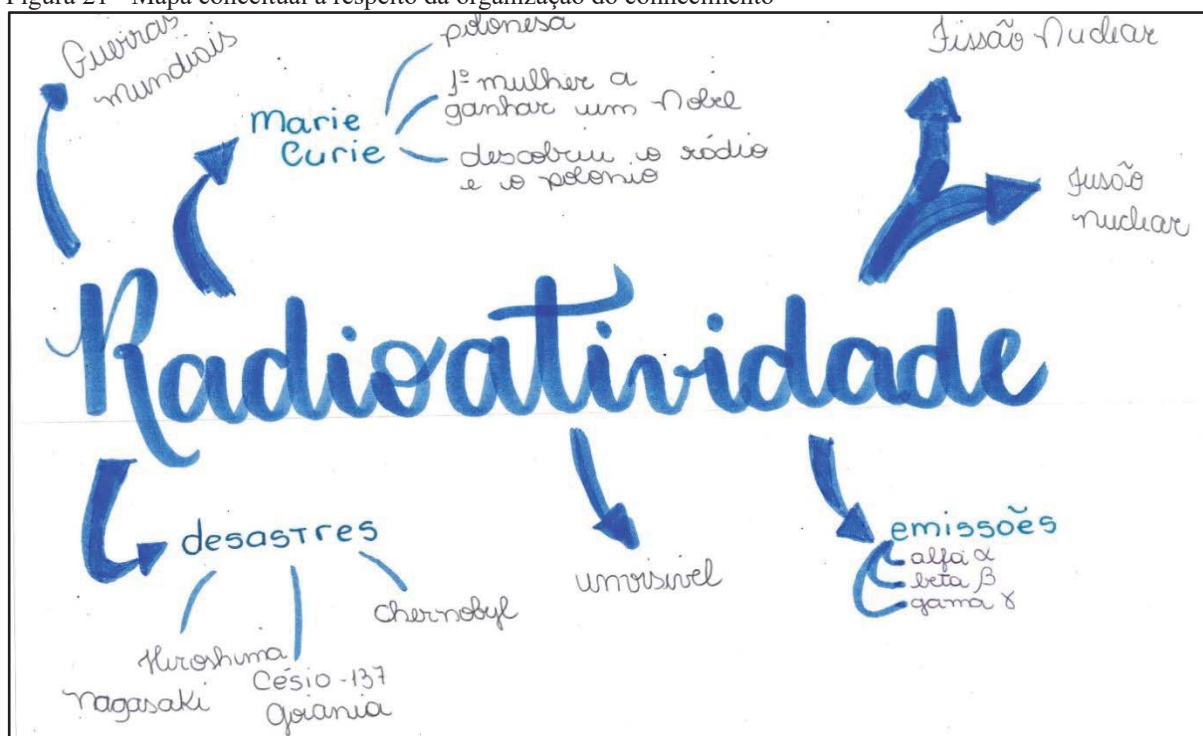 Figura 21 – Mapa conceitual a respeito da organização do conhecimento
Guerras
mundiais
Marie
Curie
polonesa
1º mulher a
ganhar um Nobel
descobriu o rádio
e o polonio
Fissão Nuclear
Fusão
nuclear
Radioatividade
desastres
Hiroshima
Nagasaki
Césio-137
Goiânia
Chernobyl
invisível
emissões
alfa α
beta β
gama γ